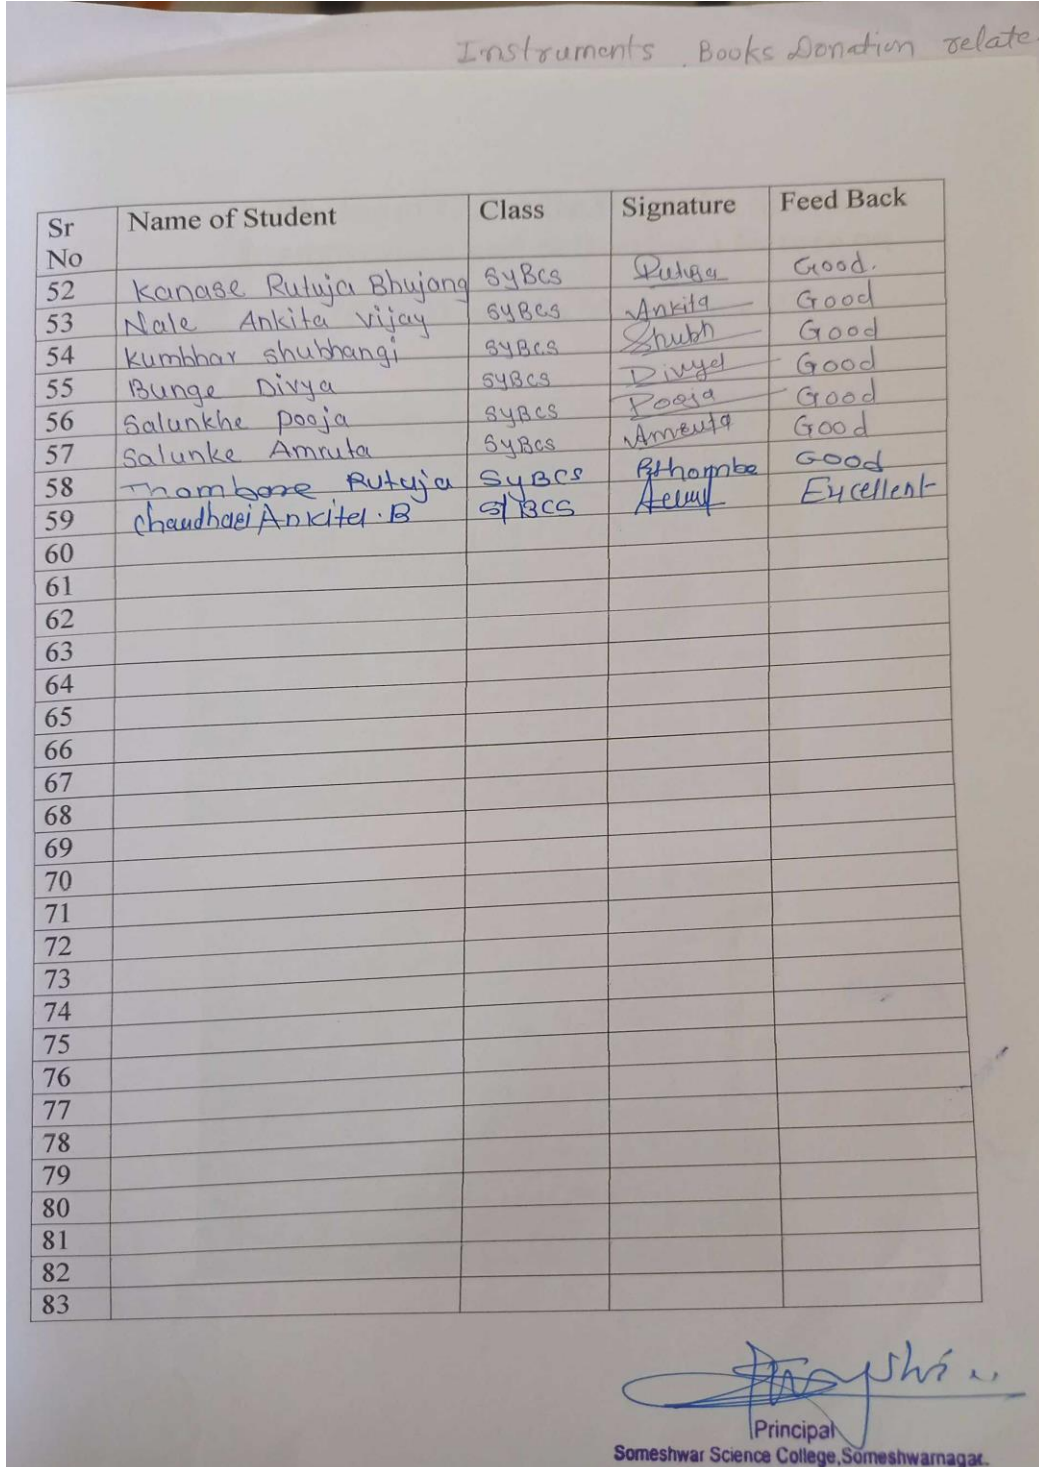 Instruments Books Donation relate
Sr No Name of Student Class Signature Feed Back
52 Kanase Rutuja Bhujang SyBcs Good.
53 Nale Ankita Vijay SyBcs Ankita Good
54 Kumbhar shubhangi SyBcs Shubh Good
55 Bunge Divya SyBcs Divya Good
56 Salunkhe pooja SyBcs Pooja Good
57 Salunke Amruta SyBcs Amruta Good
58 Thombare Rutuja SyBCS Rthombe Good
59 Chaudhari Ankita.B SyBCS Excellent
60
61
62
63
64
65
66
67
68
69
70
71
72
73
74
75
76
77
78
79
80
81
82
83
Principal
Someshwar Science College,Someshwarnagar.